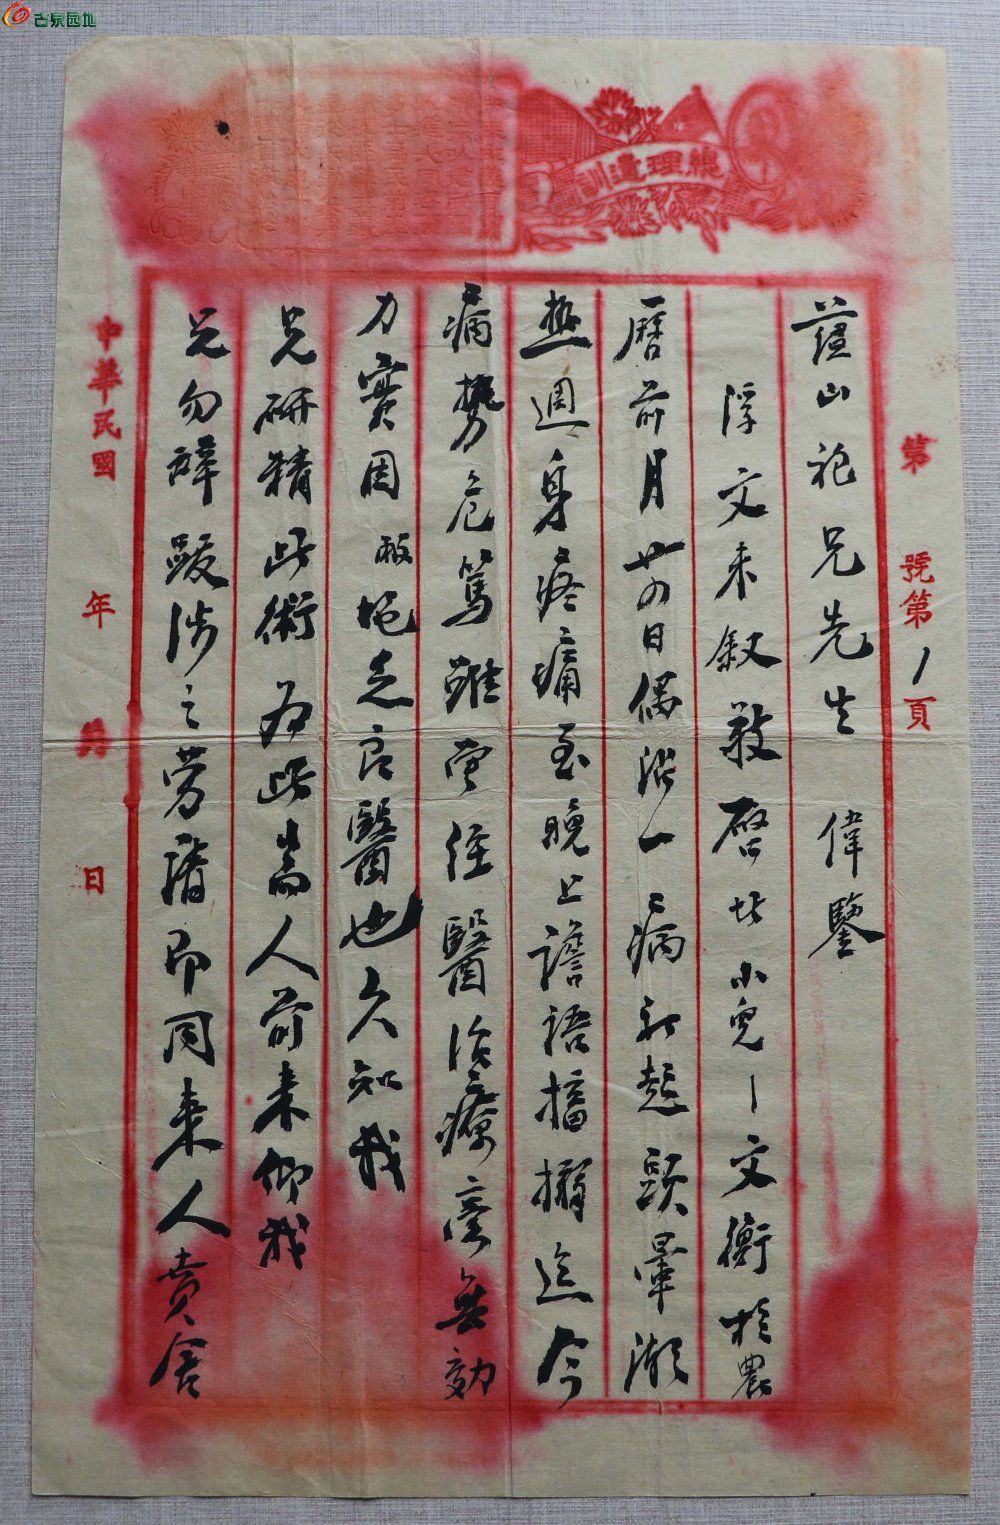 古泉园地
總理遺訓
第 號第1頁
蘊山袍兄先生 偉鑒
浮文未敘敬啓者小兒文衡於農
曆前月廿四日偶沾一病初起頭暈潮
熱週身疼痛至晚上譫語搐搦迄今
病勢危篤雖會經醫治療毫無効
力實因敝地乏良醫也久知我
兄研精此術為此耑人前来仰我
兄勿辭跋涉之勞請即同来人賁舍
中華民國 年 月 日